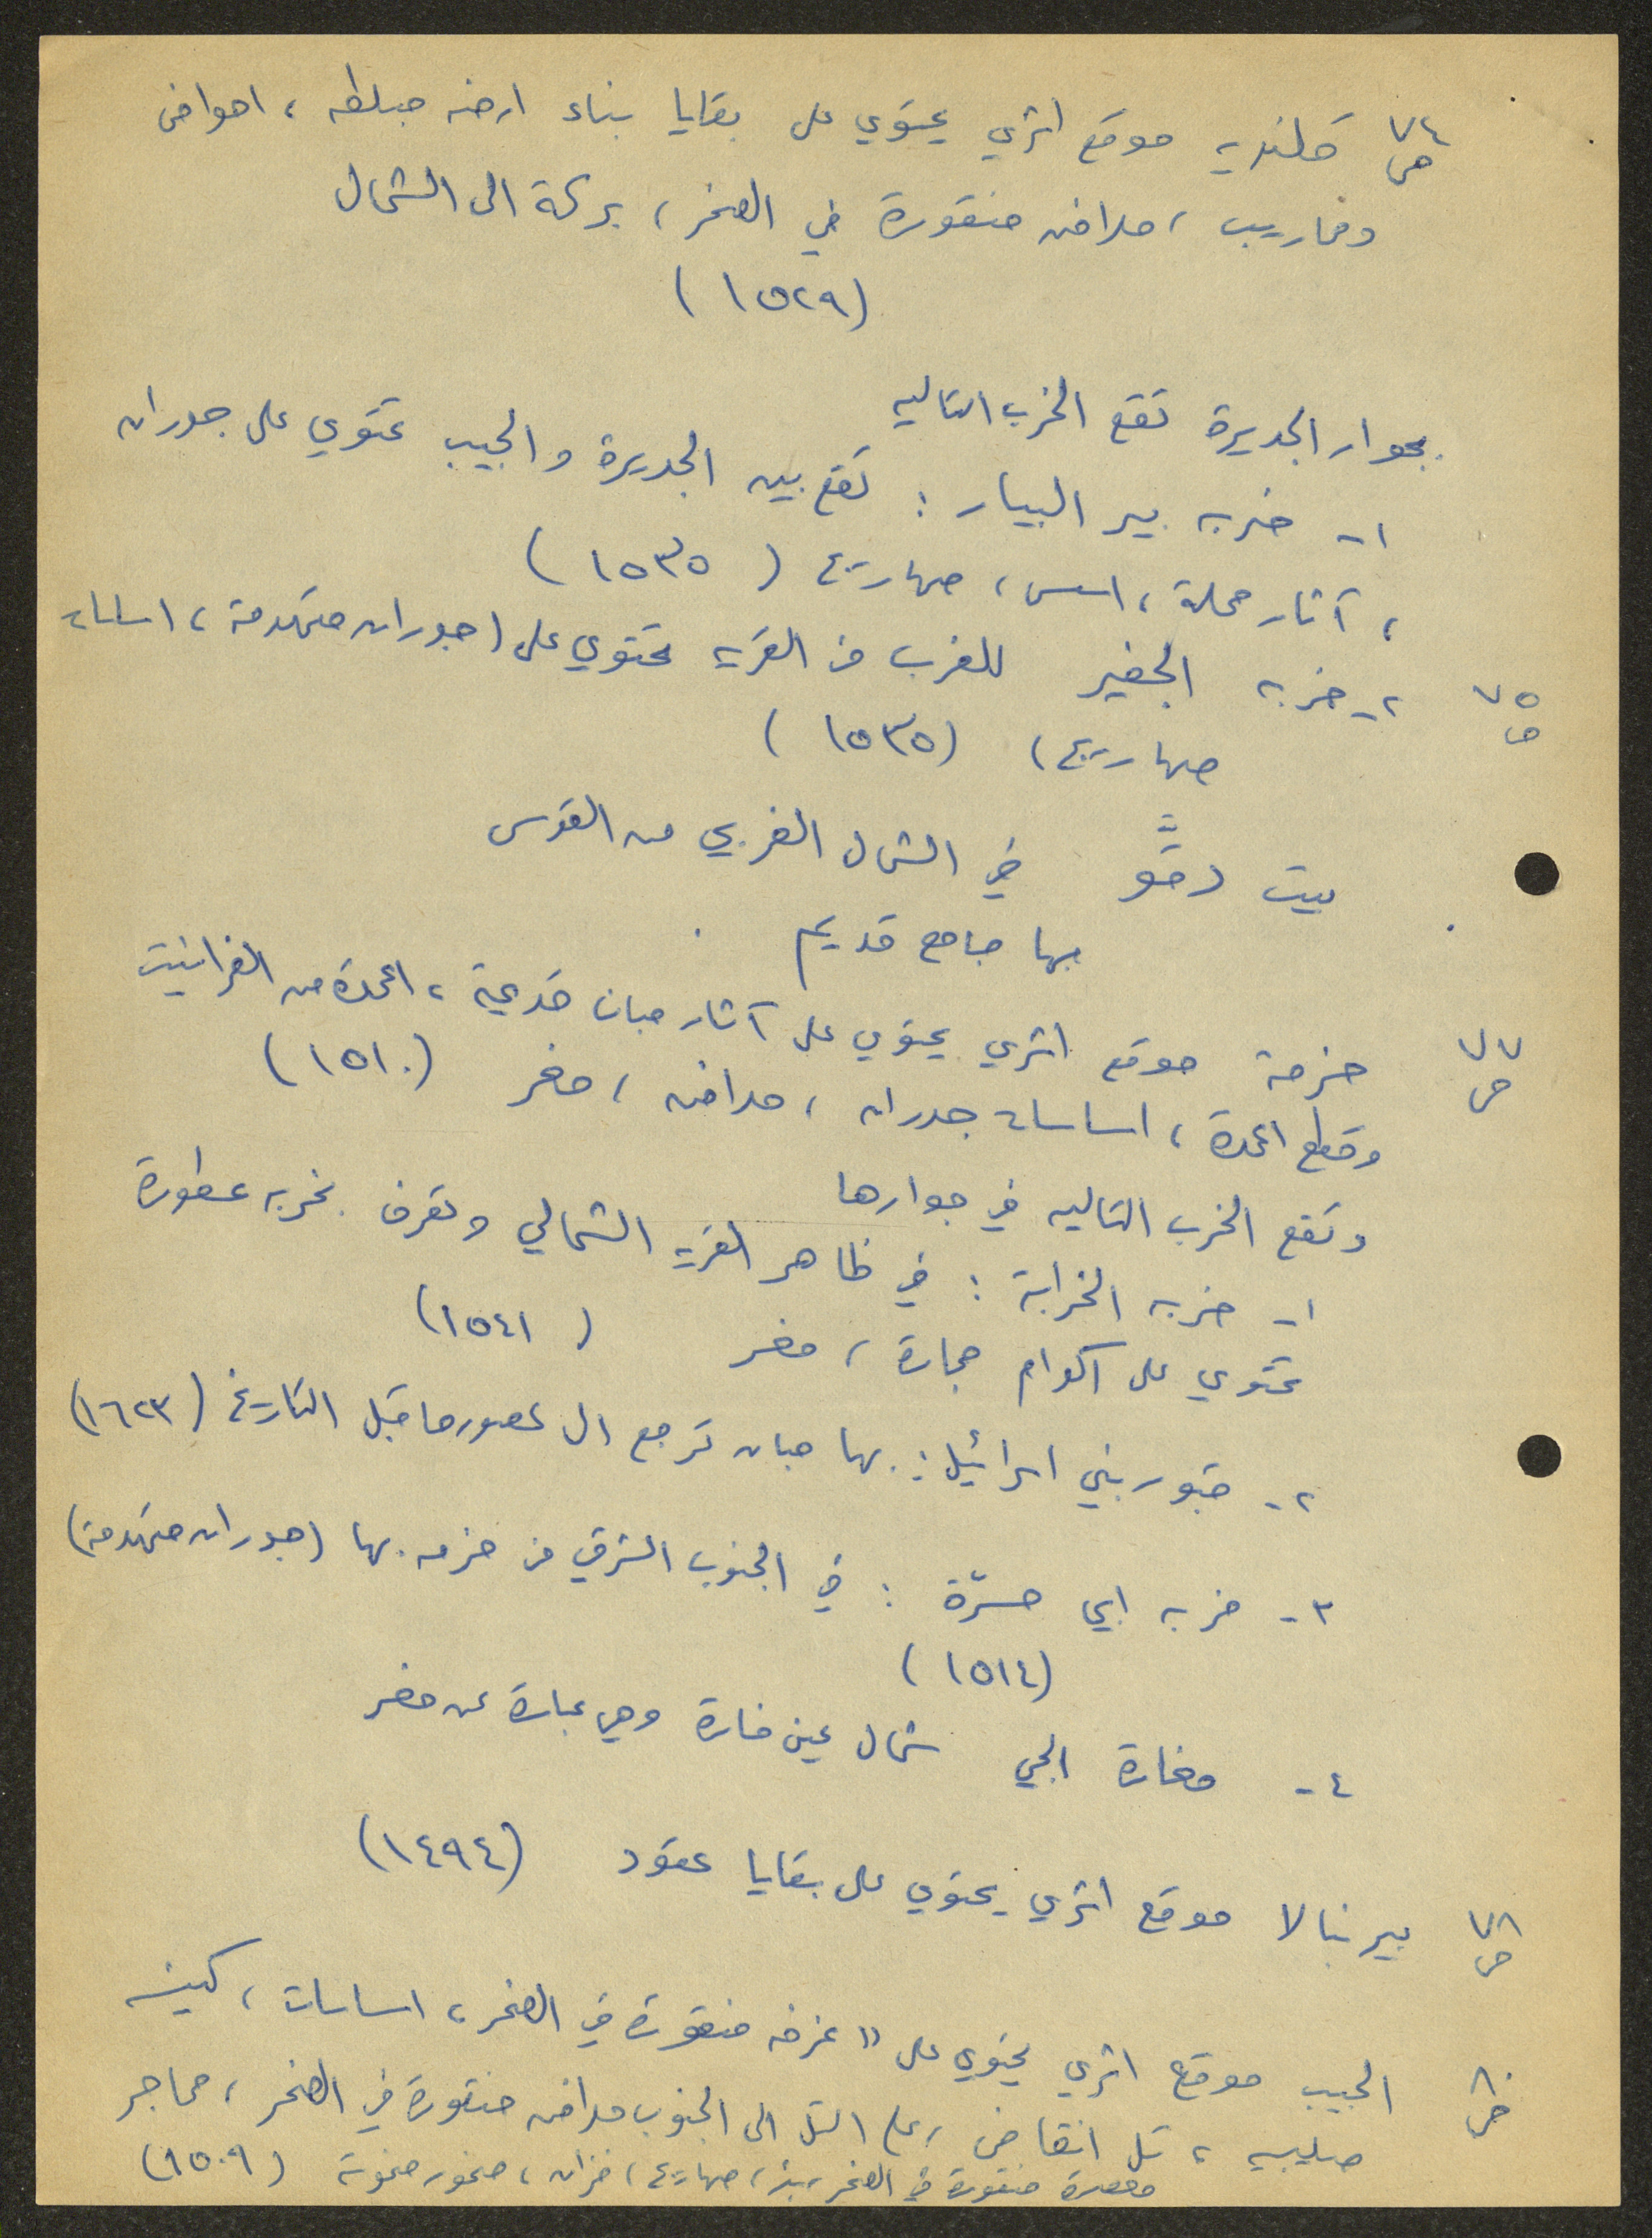 ص ٧٤ قلنديه موقع اثري يحتوي على بقايا بناء ارضه مبلطه ، احواض
ومحاريب ، مدافن منقورة في الصخر ، بركة الى الشمال
(١٥٢٩)
بجوار الجديرة تقع الخرب التاليه
١- خربه بير البيار : تقع بين الجديرة والجيب تحتوي على جدران
، آثار محلة ، اسس ، صهاريج (١٥٣٥)
ص ٧٥ ٢- خربه الجفير للغرب من القريه تحتوي على (جدران متهدمة ، اساسات
صهاريج) (١٥٣٥)
بيت دقّو في الشمال الغربي من القدس
بها جامع قديم
ص ٧٧ حزمة موقع اثري يحتوي على آثار مبان قديمة ، اعمدة من الغرانيت
وقطع اعمدة ، اساسات جدران ، مدافن ، مغر (١٥١٠)
وتقع الخرب التاليه في جوارها
١- خربه الخرابة : في ظاهر القريه الشمالي وتعرف بخربه عطورة
تحتوي على اكوام حجارة ، مغر (١٥٤١)
٢- قبور بني اسرائيل : بها مبان ترجع الى عصور ما قبل التاريخ (١٦٢٣)
٣- خربه ابي مسرّة : في الجنوب الشرقي من حزمه بها (جدران متهدمة)
(١٥١٤)
٤- مغارة الجي شمال عين فارة وهي عبارة عن مغر
ص ٧٨ بير نبالا موقع اثري يحتوي على بقايا عقود (١٤٩٤)
ص ٨٠ الجيب موقع اثري يحتوي على " غرفه منقورة في الصخر ، اساسات ، كنيسه
صليبيه ، تل انقاض ، على التل الى الجنوب مدافن منقورة في الصخر ، محاجر
معصرة منقورة في الصخر ، بئر ، صهاريج ، خزان ، صخور منحوتة (١٥٠٩)